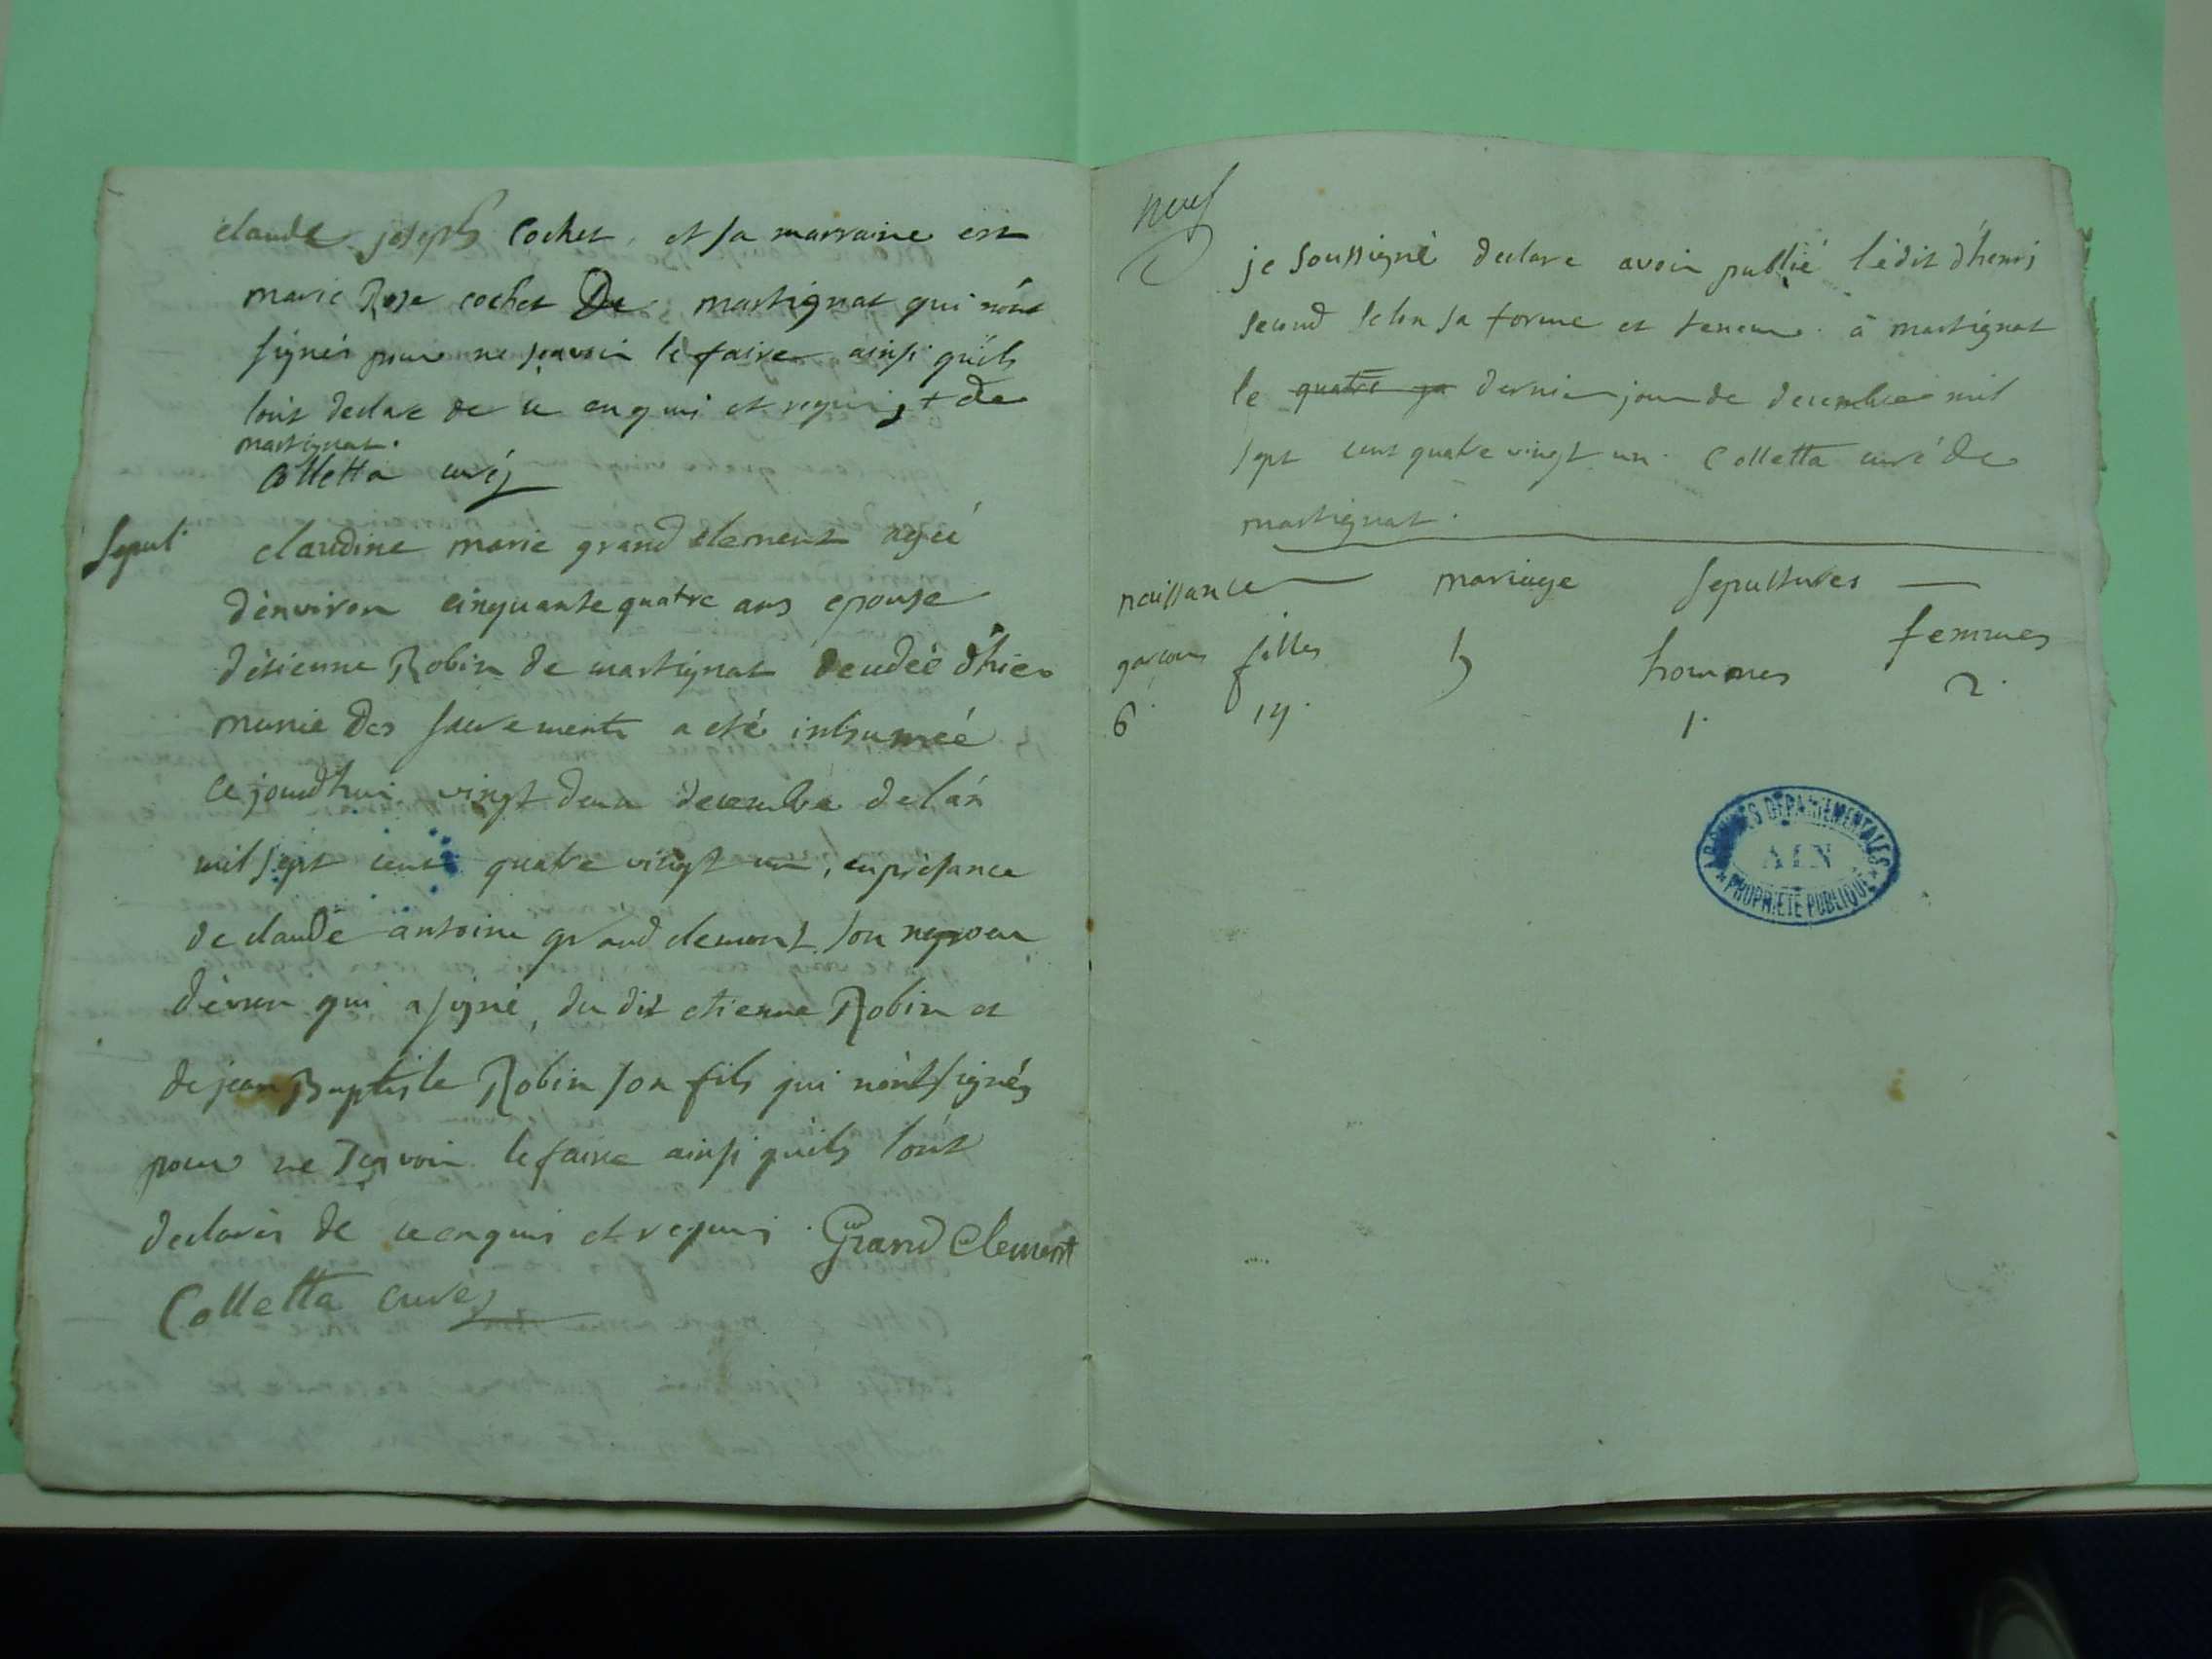 claude joseph Cochet, et sa marraine est
marie Rose cochet De martignat qui n'ont
signés pour ne sçavoir le faire ainsi qu'ils
l'ont declare de ce enquis et requis, + de
martignat.
Colletta curé
Sepul. claudine marie grand clement agéé
d'environ cinquante quatre ans epouse
d'etienne Robin de martignat decedéé d'hier
munie des sacrements a eté inhuméé
ce jourd'hui vingt deux decembre de l'an
mil sept cent quatre vingt un, en présance
de claude antoine grand clement son neveu
qui a signé, du dit etienne Robin et
de jean Baptiste Robin son fils qui n'ont signés
pour ne sçavoir le faire ainsi qu'ils l'ont
declarés de ce enquis et requis. Grand Clement
Colletta curé
neuf
je soussigné declare avoir publié l'édit d'henri
second selon sa forme et teneur à martignat
le quatre dernier jour de decembre mil
sept cent quatre vingt un. Colletta curé de
martignat.
naissance mariage sepultures
garçons filles 5 hommes femmes
6. 14. 1. 2.
ARCHIVES DÉPARTEMENTALES
AIN
* PROPRIÉTÉ PUBLIQUE *